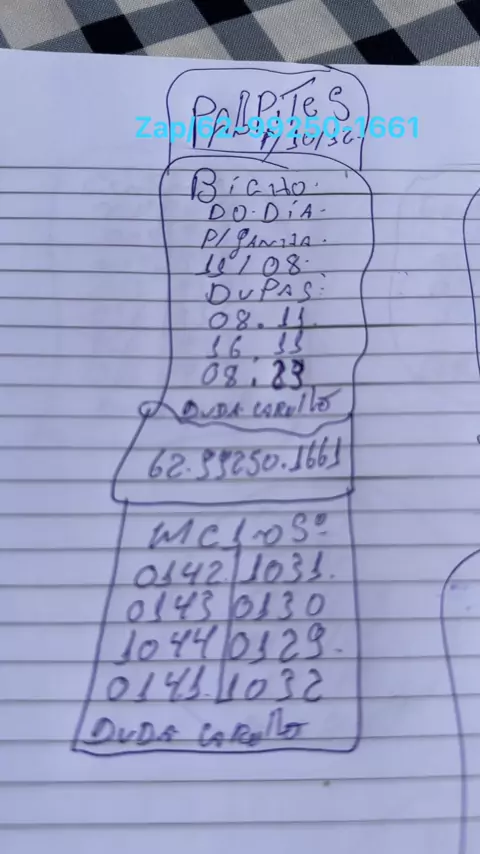 PALPITES
Zap/62-99250-1661
BICHO.
DO.DIA.
P/GANHA.
11/08.
DUPAS:
08.11.
16.11
08.23
DUDA CARVILHO
62.99250.1661
MC 1 AO 5º
0142 1031.
0143 0130
1044 0129.
0141. 1032
DUDA CARVILHO